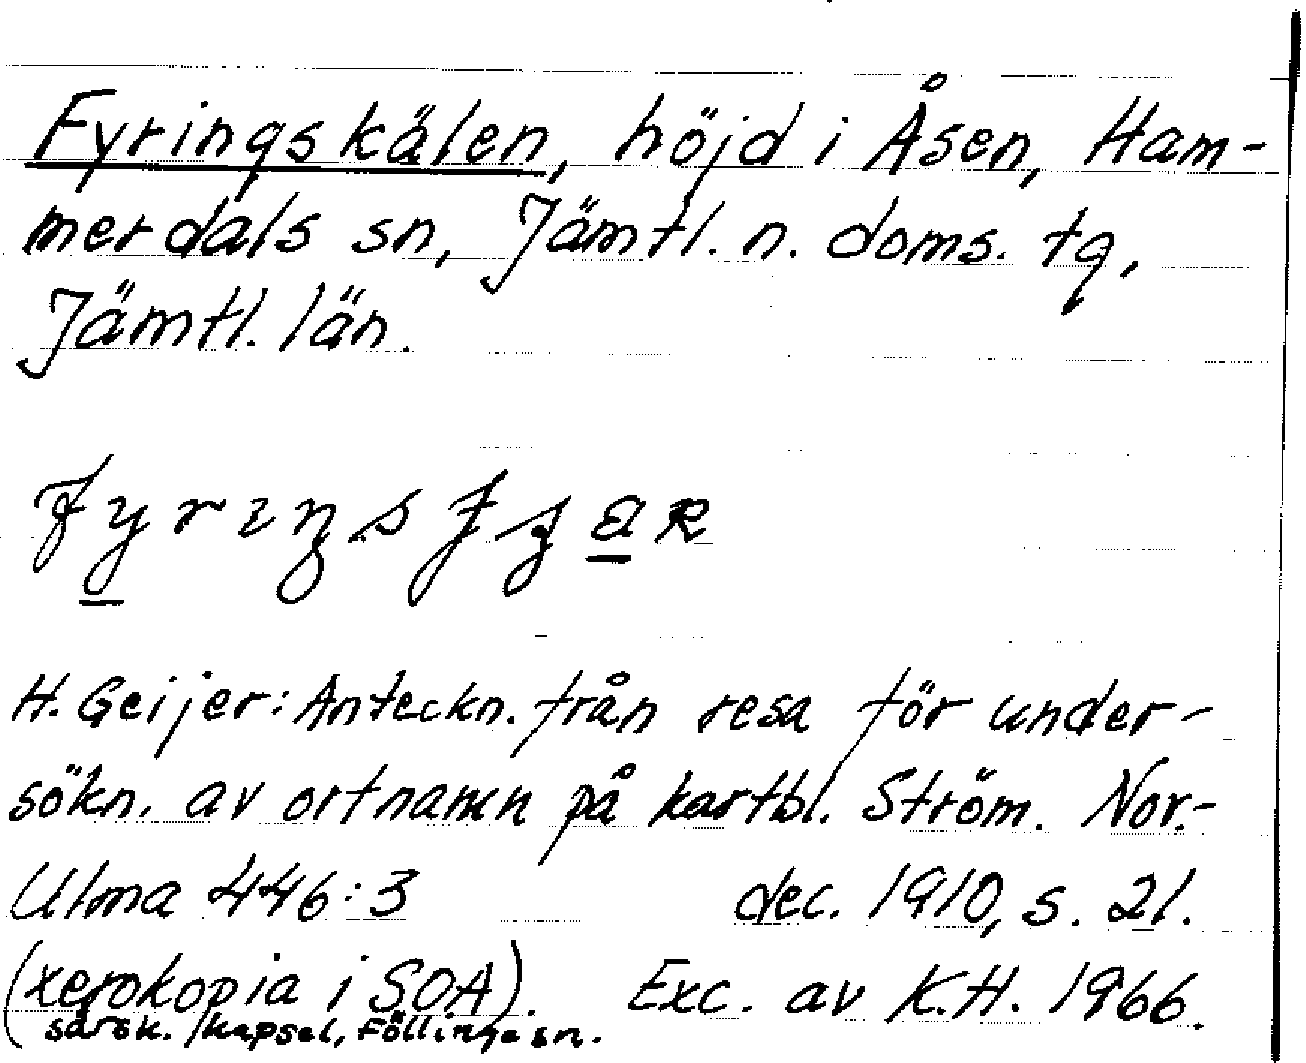 Fyringskälen, höjd i Åsen, Ham-
merdals sn, Jämtl. n. doms. tg,
Jämtl. län.
H. Geijer: Anteckn. från resa för under-
sökn. av ortnamn på kartbl. Ström. Nor.-
Ulma 446:3 dec. 1910, s. 21.
(xerokopia i SOA). Exc. av K.H. 1966.
särsk. kapsel, Föllinge sn.